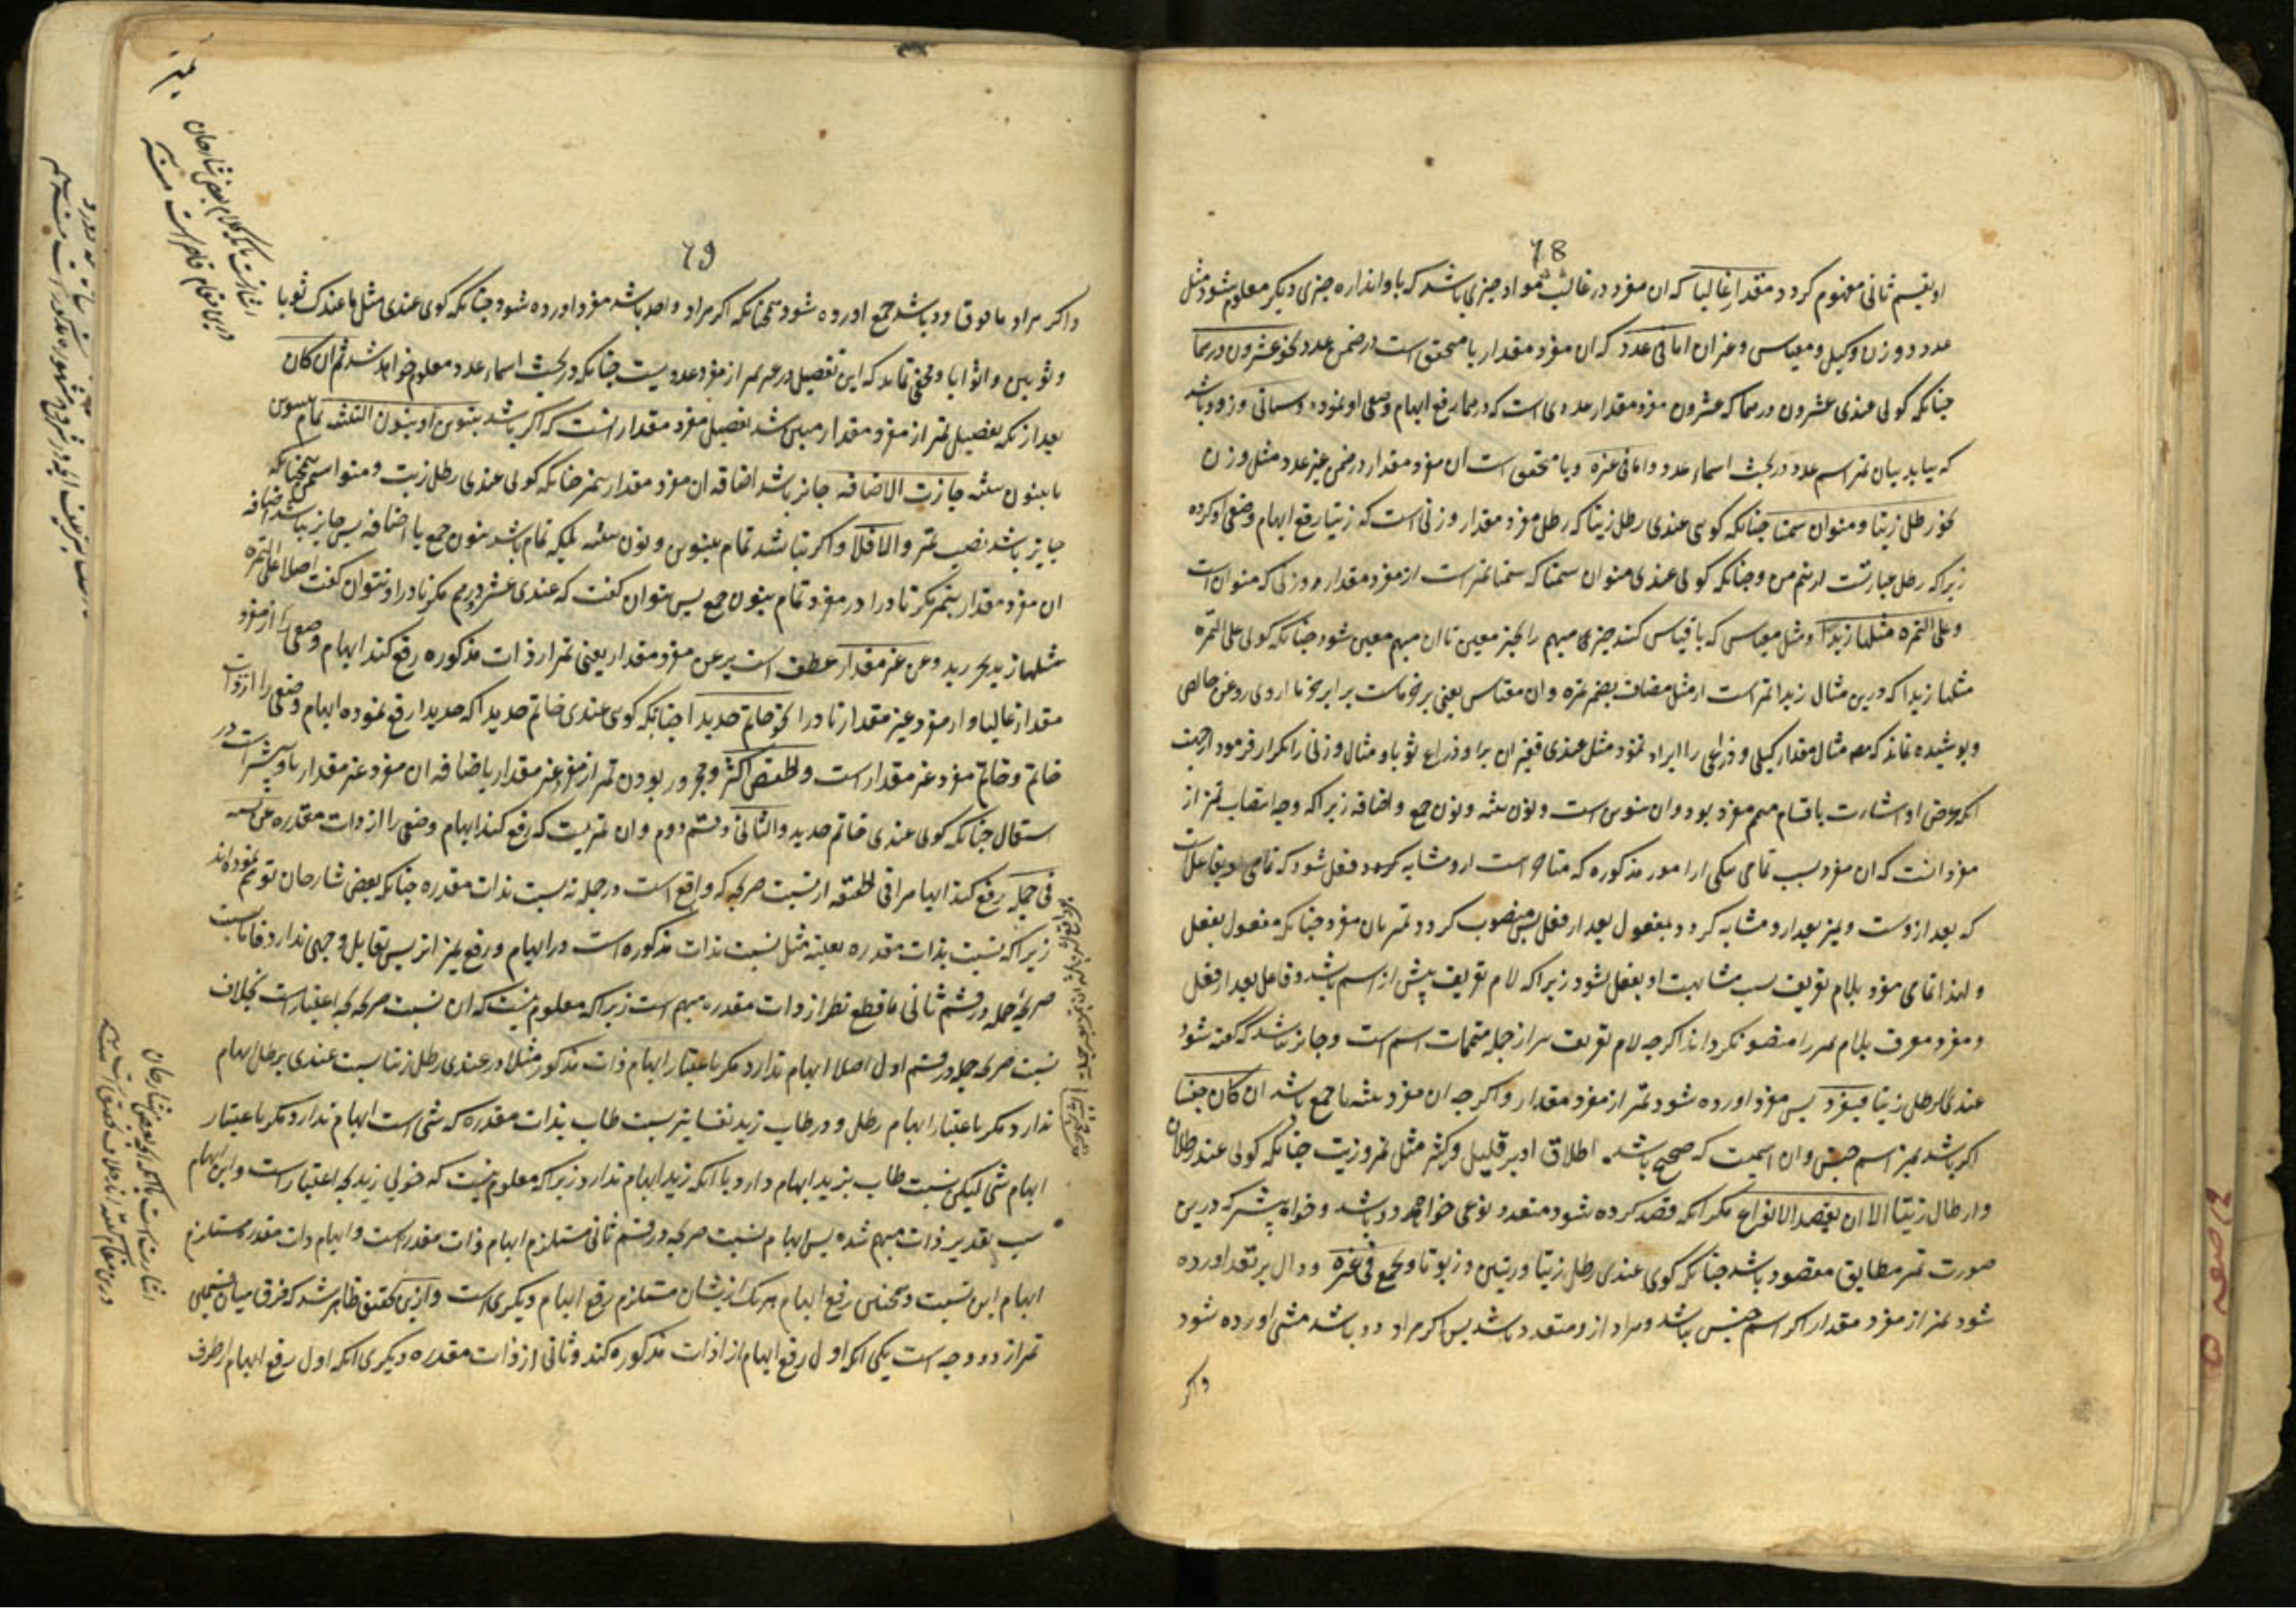 78
او بقسم ثانی مفهوم کردد مقدار غالبا که ان مفرد در غالب مواد چیزی باشد که باو اندازه چیزی دیکر معلوم شود مثل
عدد و وزن و کیل و مقیاس و غیر ان اما فی عدد که ان مفرد مقدار یا متحقق است در ضمن عدد نحو عشرون درهما
چنانکه کوئی عندی عشرون درهما که عشرون مفرد مقدار عددی است که درهما رفع ابهام وضعی او نموده و سیاتی و زود باشد
که بیاید بیان تمیز اسم عدد در بحث اسماء عدد و اما فی غیره و یا متحقق است ان مفرد مقدار در ضمن غیر عدد مثل وزن
نحو رطل زیتا و منوان سمنا چنانکه کوئی عندی رطل زیتا که رطل مفرد مقدار وزنی است که زیتا رفع ابهام وضعی او کرده
زیرا که رطل عبارتست از نیم من و چنانکه کوئی عندی منوان سمنا که سمنا تمیز است از مفرد مقدار وزنی که منوان است
و علی التمره مثلها زبدا و مثل مقیاس که باو قیاس کنند چیزی مبهم را بچیز معین تا ان مبهم معین شود چنانکه کوئی علی التمره
مثلها زبدا که درین مثال زبدا تمیز است از مثل مضاف بضمیر تمره و ان مقیاس یعنی بر خرماست برابر خرما از روی روغن خالص
و پوشیده نماند که مصـ مثال مقدار کیلی و ذراعی را ایراد ننمود مثل عندی قفیزان برا و ذراع ثوبا و مثال وزنی را تکرار فرمود از جهت
انکه غرض او اشارت باقسام مبهم مفرد بود و ان تنوین است و نون تثنیه و نون جمع و اضافه زیرا که وجه انتصاب تمیز از
مفرد انست که ان مفرد بسبب تمامی بیکی از امور مذکوره که متاخر است ازو مشابه کردد فعل شود که تمامی او بفاعل است
که بعد ازوست و تمیز بعد ازو مشابه کردد بمفعول بعد از فعل پس منصوب کردد تمیز بان مفرد چنانکه مفعول بفعل
و لهذا تمامی مفرد بلام تعریف سبب مشابهت او بفعل نشود زیرا که لام تعریف پیش از اسم باشد و فاعل بعد از فعل
و مفرد معرف بلام تمیز را منصوب نکرداند اکرچه لام تعریف نیز از جمله متممات اسم است و جایز نباشد که کفته شود
عندی الرطل زیتا فیفرد پس مفرد اورده شود تمیز از مفرد مقدار و اکرچه ان مفرد تثنیه یا جمع باشد ان کان جنسا
اکر باشد تمیز اسم جنس و ان اسمیست که صحیح باشد اطلاق او بر قلیل و کثیر مثل تمر و زیت چنانکه کوئی عندی رطلان
و ارطال زیتا الا ان یقصد الانواع مکر انکه قصد کرده شود متعدد نوعی خواه دو باشد و خواه بیشتر که درین
صورت تمیز مطابق مقصود باشد چنانکه کوئی عندی رطل زیتا و زیتین و زیوتا و یجمع فی غیره و دال بر تعدد اورده
شود تمیز از مفرد مقدار اکر اسم جنس نباشد و مراد ازو متعدد باشد پس اکر مراد دو باشد مثنی اورده شود
واکر
79
واکر مراد ما فوق دو باشد جمع اورده شود همچنانکه اکر مراد واحد باشد مفرد اورده شود چنانکه کوئی عندی مثل ما عندک ثوبا
و ثوبین و اثوابا و مخفی نماند که این تفصیل در غیر تمیز از مفرد عددیست چنانکه در بحث اسماء عدد معلوم خواهد شد ثم ان کان
بعد از انکه تفصیل تمیز از مفرد مقدار مبین شد تفصیل مفرد مقدار انست که اکر باشد بتنوین او بنون التثنیه تمام بتنوین
یا بنون تثنیه جازت الاضافه جایز باشد اضافه ان مفرد مقدار بتمیز چنانکه کوئی عندی رطل زیت و منوا سمن همچنانکه
جایز باشد نصب تمیز والا فلا و اکر نباشد تمام بتنوین و نون تثنیه بلکه تمام باشد بنون جمع یا اضافه پس جایز نباشد اضافه
ان مفرد مقدار بتمیز مکر نادرا در مفرد تمام بنون جمع پس نتوان کفت که عندی عشرو درهم مکر نادرا و نتوان کفت اصلا علی التمره
مثلها زبد بجر زبد و عن غیر مقدار عطف است بر عن مفرد مقدار یعنی تمیز از ذات مذکوره رفع کند ابهام وضعی را از مفرد
مقدار غالبا و از مفرد غیر مقدار نادرا نحو خاتم حدیدا چنانکه کوئی عندی خاتم حدیدا که حدیدا رفع نموده ابهام وضعی را از ذات
خاتم و خاتم مفرد غیر مقدار است و الخفض اکثر و مجرور بودن تمیز از مفرد غیر مقدار باضافه ان مفرد غیر مقدار باو بیشتر است در
استعمال چنانکه کوئی عندی خاتم حدید و الثانی و قسم دوم و ان تمیزیست که رفع کند ابهام وضعی را از ذات مقدره عن نسبة
فی جملة رفع کند ابهامی را فی الحقیقه از نسبت صریحی که واقع است در جمله نه نسبت بذات مقدره چنانکه بعض شارحان توهم نموده اند
زیرا که نسبت بذات مقدره بعینه مثل نسبت بذات مذکوره است در ابهام و رفع تمیز انرا پس تقابل وجهی ندارد و فاما نسبت
صریحی جمله در قسم ثانی با قطع نظر از ذات مقدره مبهم است زیرا که معلوم نیست که ان نسبت صریحی بچه اعتبار است بخلاف
نسبت صریحی جمله در قسم اول اصلا ابهام ندارد مکر باعتبار ابهام ذات مذکور مثلا در عندی رطل زیتا نسبت عندی برطل ابهام
ندارد مکر باعتبار ابهام رطل و در طاب زید نفسا نیز نسبت طاب بذات مقدره که شی است ابهام ندارد مکر باعتبار
ابهام شی لیکن نسبت طاب بزید ابهام دارد با انکه زید ابهام ندارد زیرا که معلوم نیست که خوبی زید بچه اعتبار است و این ابهام
سبب تقدیر ذات مبهم شده پس ابهام نسبت صریحی در قسم ثانی مستلزم ابهام ذات مقدر است و ابهام ذات مقدر مستلزم
ابهام این نسبت و همچنین رفع ابهام هر یک ازیشان مستلزم رفع ابهام دیکری است و ازین تحقیق ظاهر شد که فرق میان قسمین
تمیز از دو وجه است یکی انکه اول رفع ابهام از ذات مذکوره کند و ثانی از ذات مقدره و دیکری انکه اول رفع ابهام از طرف
اشارتست بانکه کلام بعض شارحان
درین مقام
اشارتست بانکه بعض شارحان